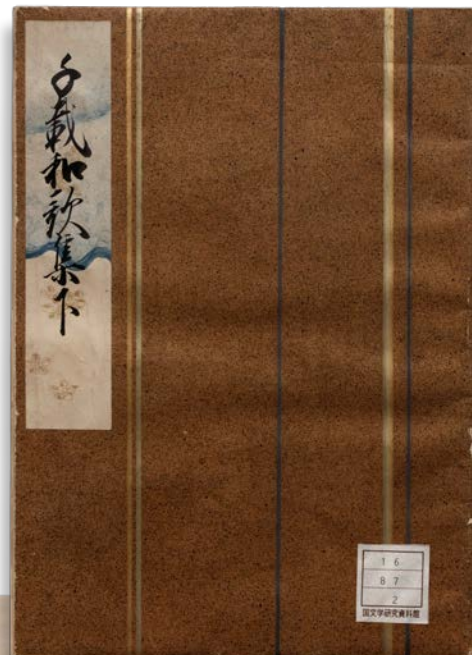 千載和歌集下
16
87
2
国文学研究資料館